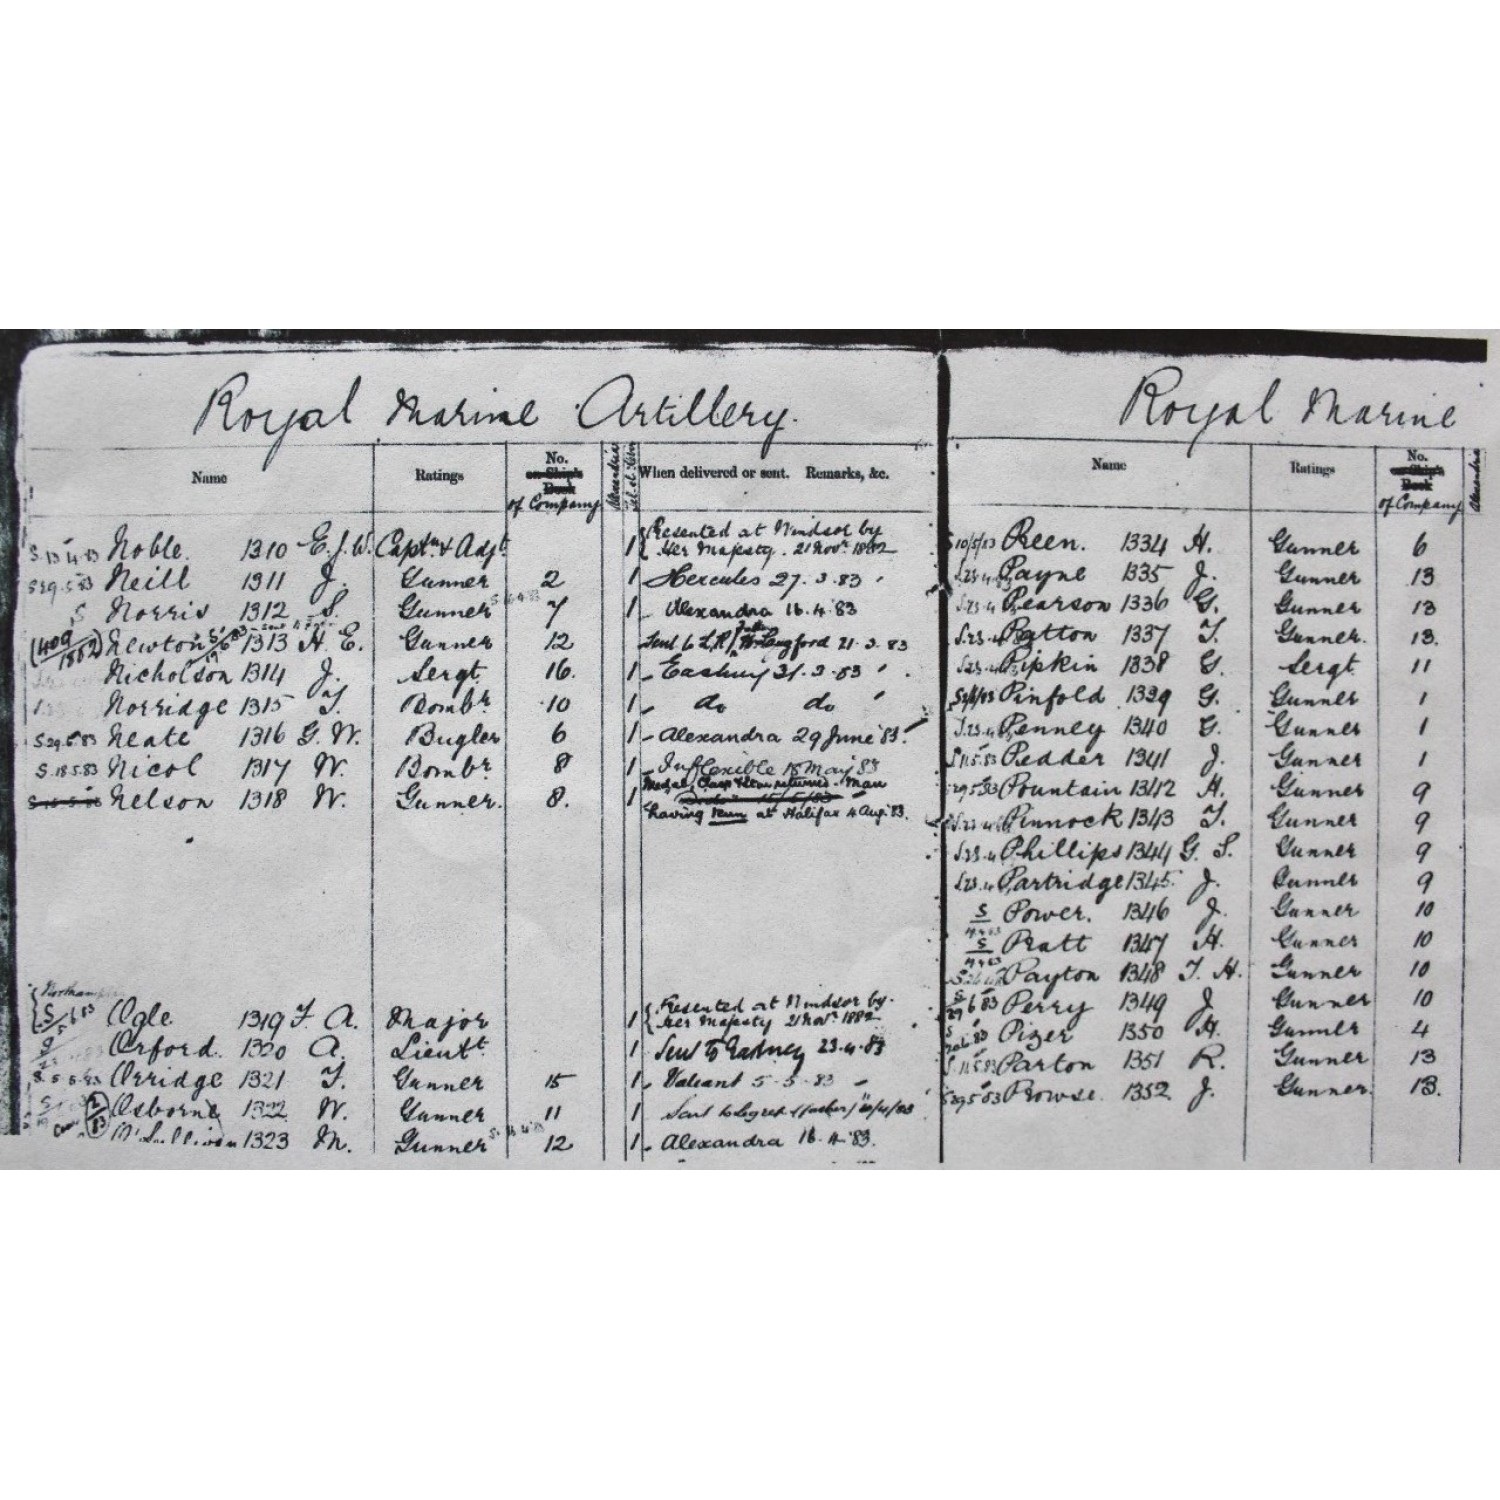 Royal Marine Artillery.
Name Ratings No. on Ship's Book of Company Alexandria Tel-el-Kebir When delivered or sent. Remarks, &c.
S 13 4 83 Noble. 1310 E. J. W. Captn & Adjt 1 { Presented at Windsor by
Her Majesty. 21 Novr 1882
S 29.5.83 Neill 1311 J. Gunner 2 1 Hercules 27.3.83
S Norris 1312 S. Gunner 7 1 Alexandra 16.4.83
(409/1882) Newton 1313 H. E. Gunner 12 1 Sent to Langford 21.3.83
Nicholson 1314 J. Sergt 16. 1 Eastney 31.3.83
Norridge 1315 T. Bombr 10 1 do do
S 29.5.83 Neate 1316 G. W. Bugler 6 1 Alexandra 29 June '83.
S.18.5.83 Nicol 1317 W. Bombr 8 1 Inflexible 18 May '83
Nelson 1318 W. Gunner. 8. 1 Medal, Clasp & Star returned. Man
having Run at Halifax 4 Aug. 83.
S/5 6 83 Ogle 1319 F. A. Major 1 { Presented at Windsor by
Her Majesty 21 Novr 1882
Orford. 1320 A. Lieutt 1 Sent to Eastney 23.4.83
S. 5.5.83 Orridge 1321 T. Gunner 15 1 Valiant 5.5.83
Osborne 1322 W. Gunner 11 1 Sent to
O'Sullivan 1323 M. Gunner 12 1 Alexandra 16.4.83.
Royal Marine
Name Ratings No. on Ship's Book of Company Alexandria
S 10/5/83 Preen. 1334 H. Gunner 6
Payne 1335 J. Gunner 13
Pearson 1336 G. Gunner 13
Patton 1337 T. Gunner. 13.
Pipkin 1338 G. Sergt 11
Pinfold 1339 G. Gunner 1
Penney 1340 G. Gunner 1
S 11.5.83 Pedder 1341 J. Gunner 1
29.5.83 Pountain 1342 H. Gunner 9
Pinnock 1343 T. Gunner 9
S.23.4 Phillips 1344 G. S. Gunner 9
S.23.4 Partridge 1345 J. Gunner 9
S Power. 1346 J. Gunner 10
S Pratt 1347 H. Gunner 10
Payton 1348 T. H. Gunner 10
S/29 6 83 Perry 1349 J Gunner 10
Pizer 1350 H. Gunner 4
S.11.5.83 Parton 1351 R. Gunner 13
S 29.5.83 Prowse. 1352 J. Gunner. 13.